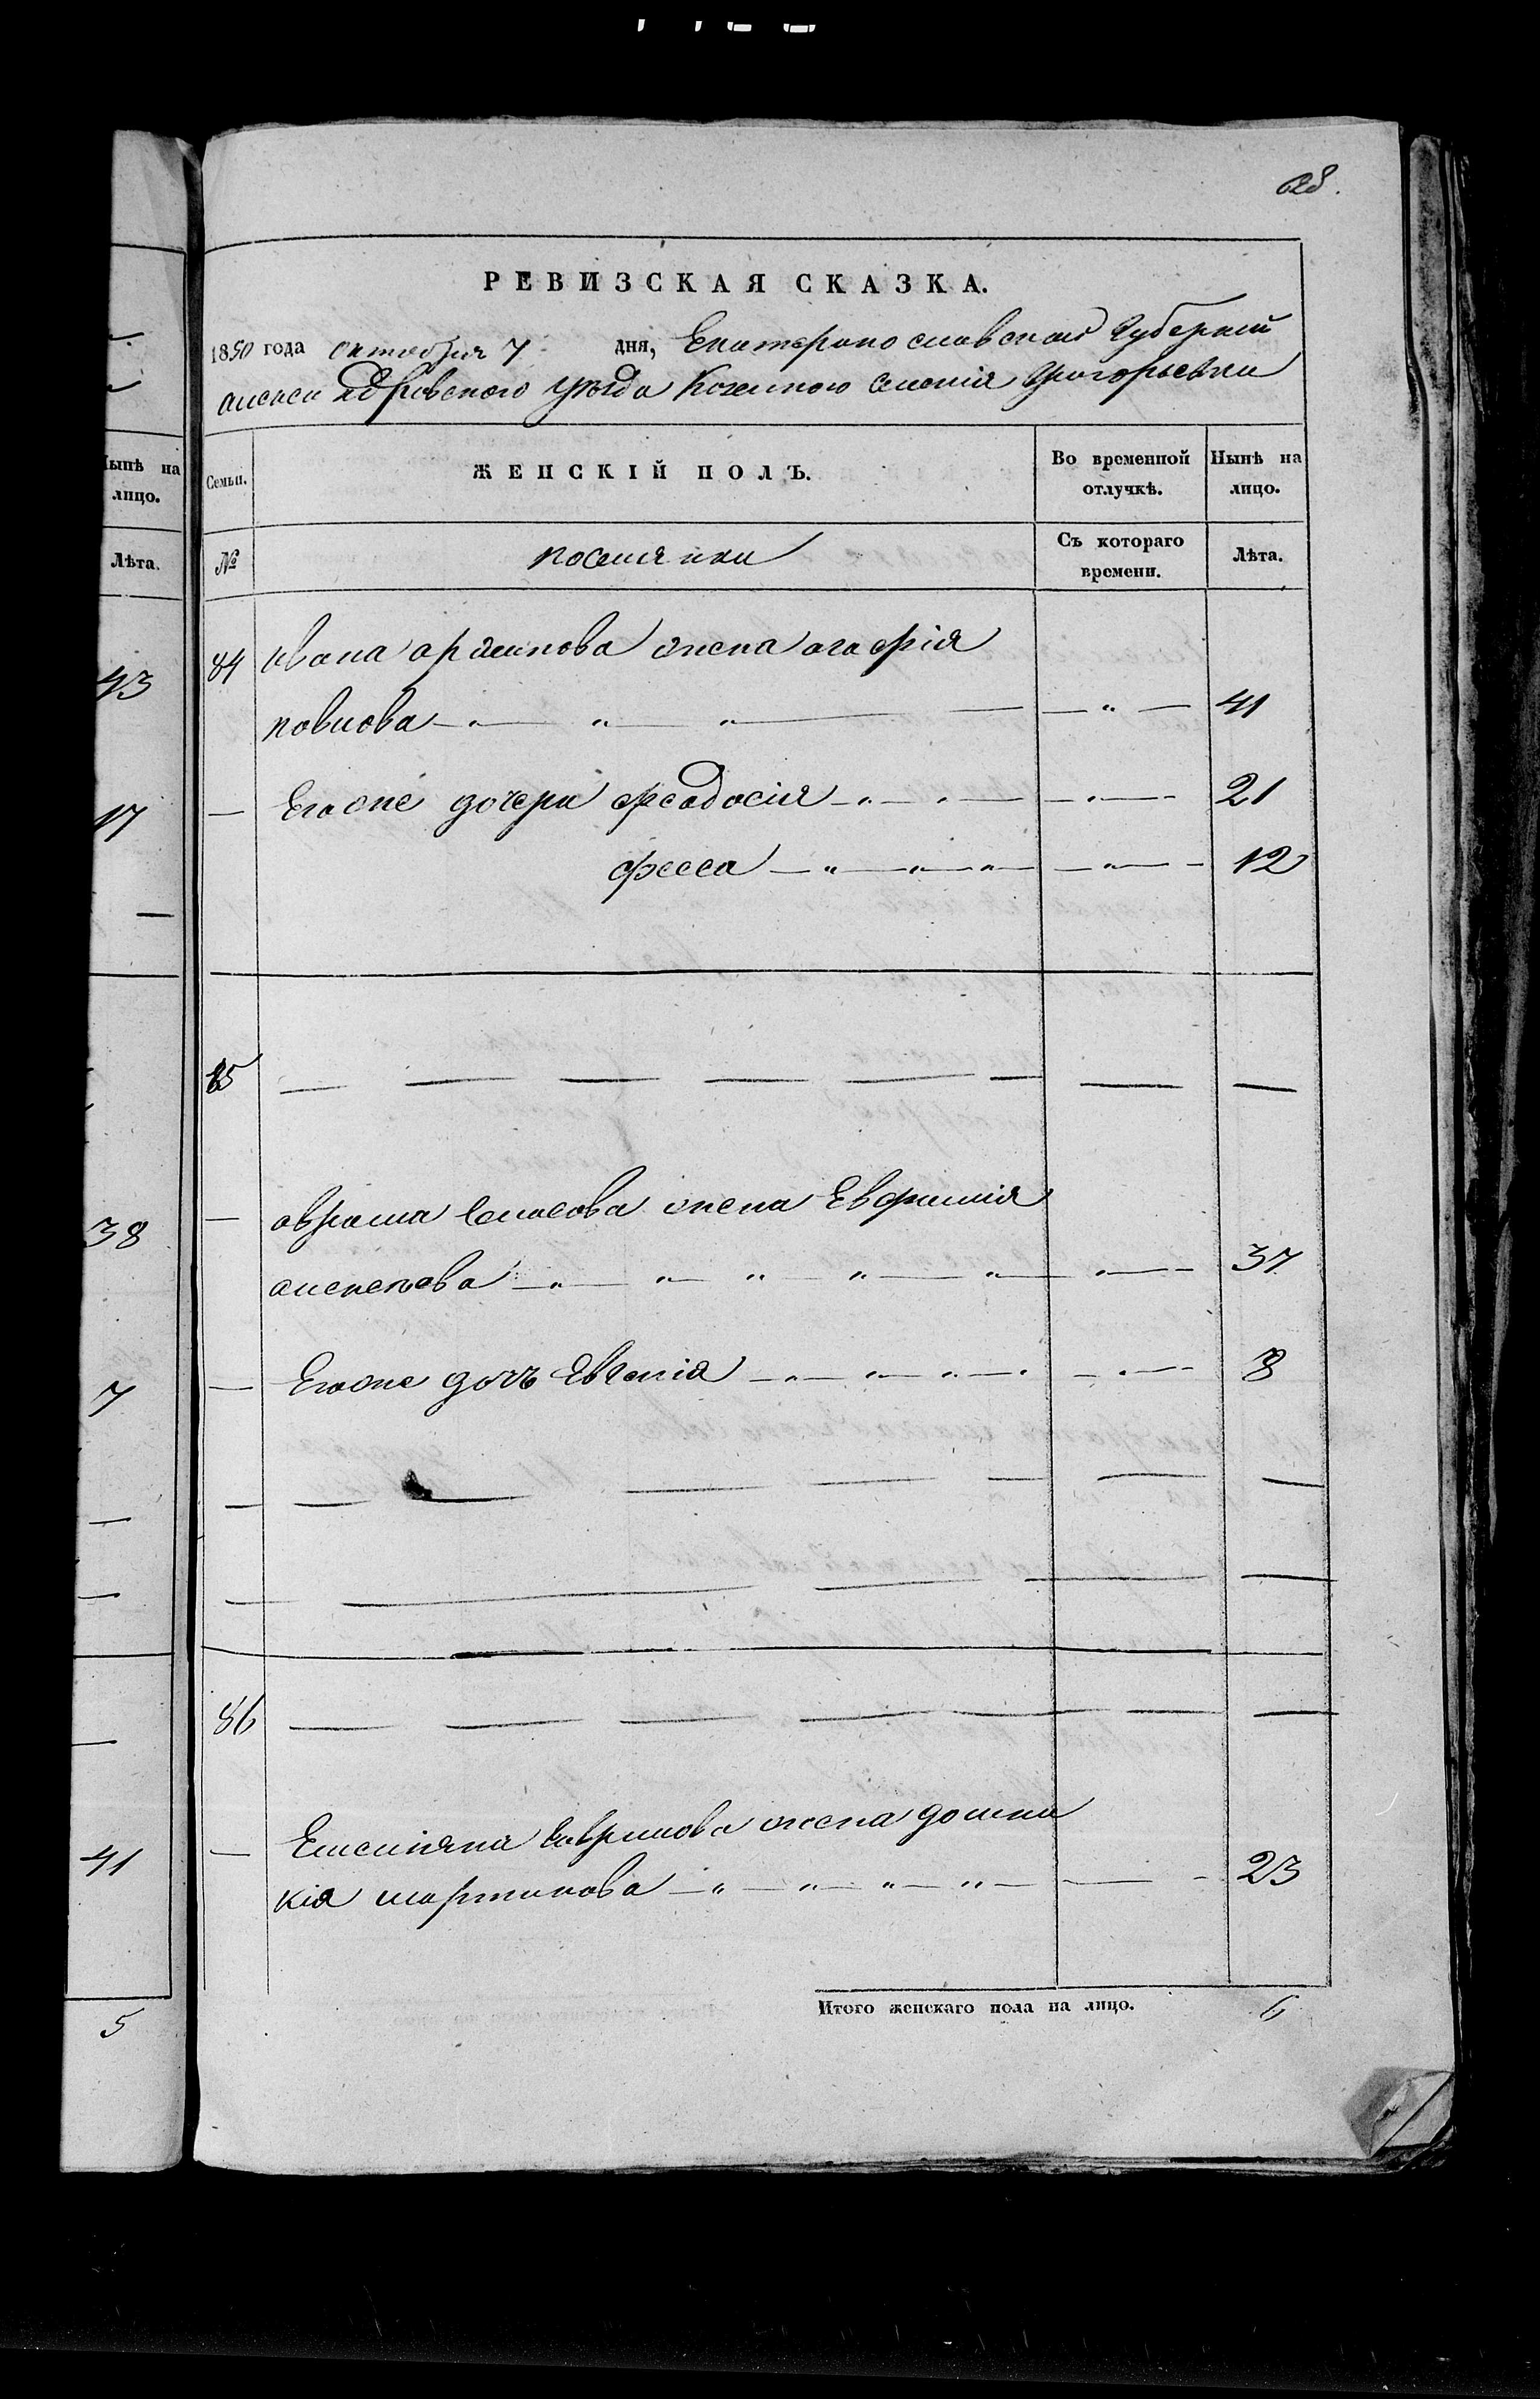 628.
РЕВИЗСКАЯ СКАЗКА.
1850 года октября 7 дня, Екатеринославской Губерніи
александровского уѣзда Казенного селенія Григорьевки
Семьи. ЖЕНСКІЙ ПОЛЪ. Во временной отлучкѣ. Нынѣ на лицо.
№ поселянки Съ котораго времени. Лѣта.
Нынѣ на лицо.
Лѣта.
43
17
38
7
41
5
84 Ивана жена агафія
павлова 41
Его же дочери феодосія 21
фекла 12
85
аврама жена Евфимія
алексеева 37
Его же дочь Евгенія 8
86
Емелияна Гаврилова жена домни
кія мартинова 23
Итого женскаго пола на лицо. 6